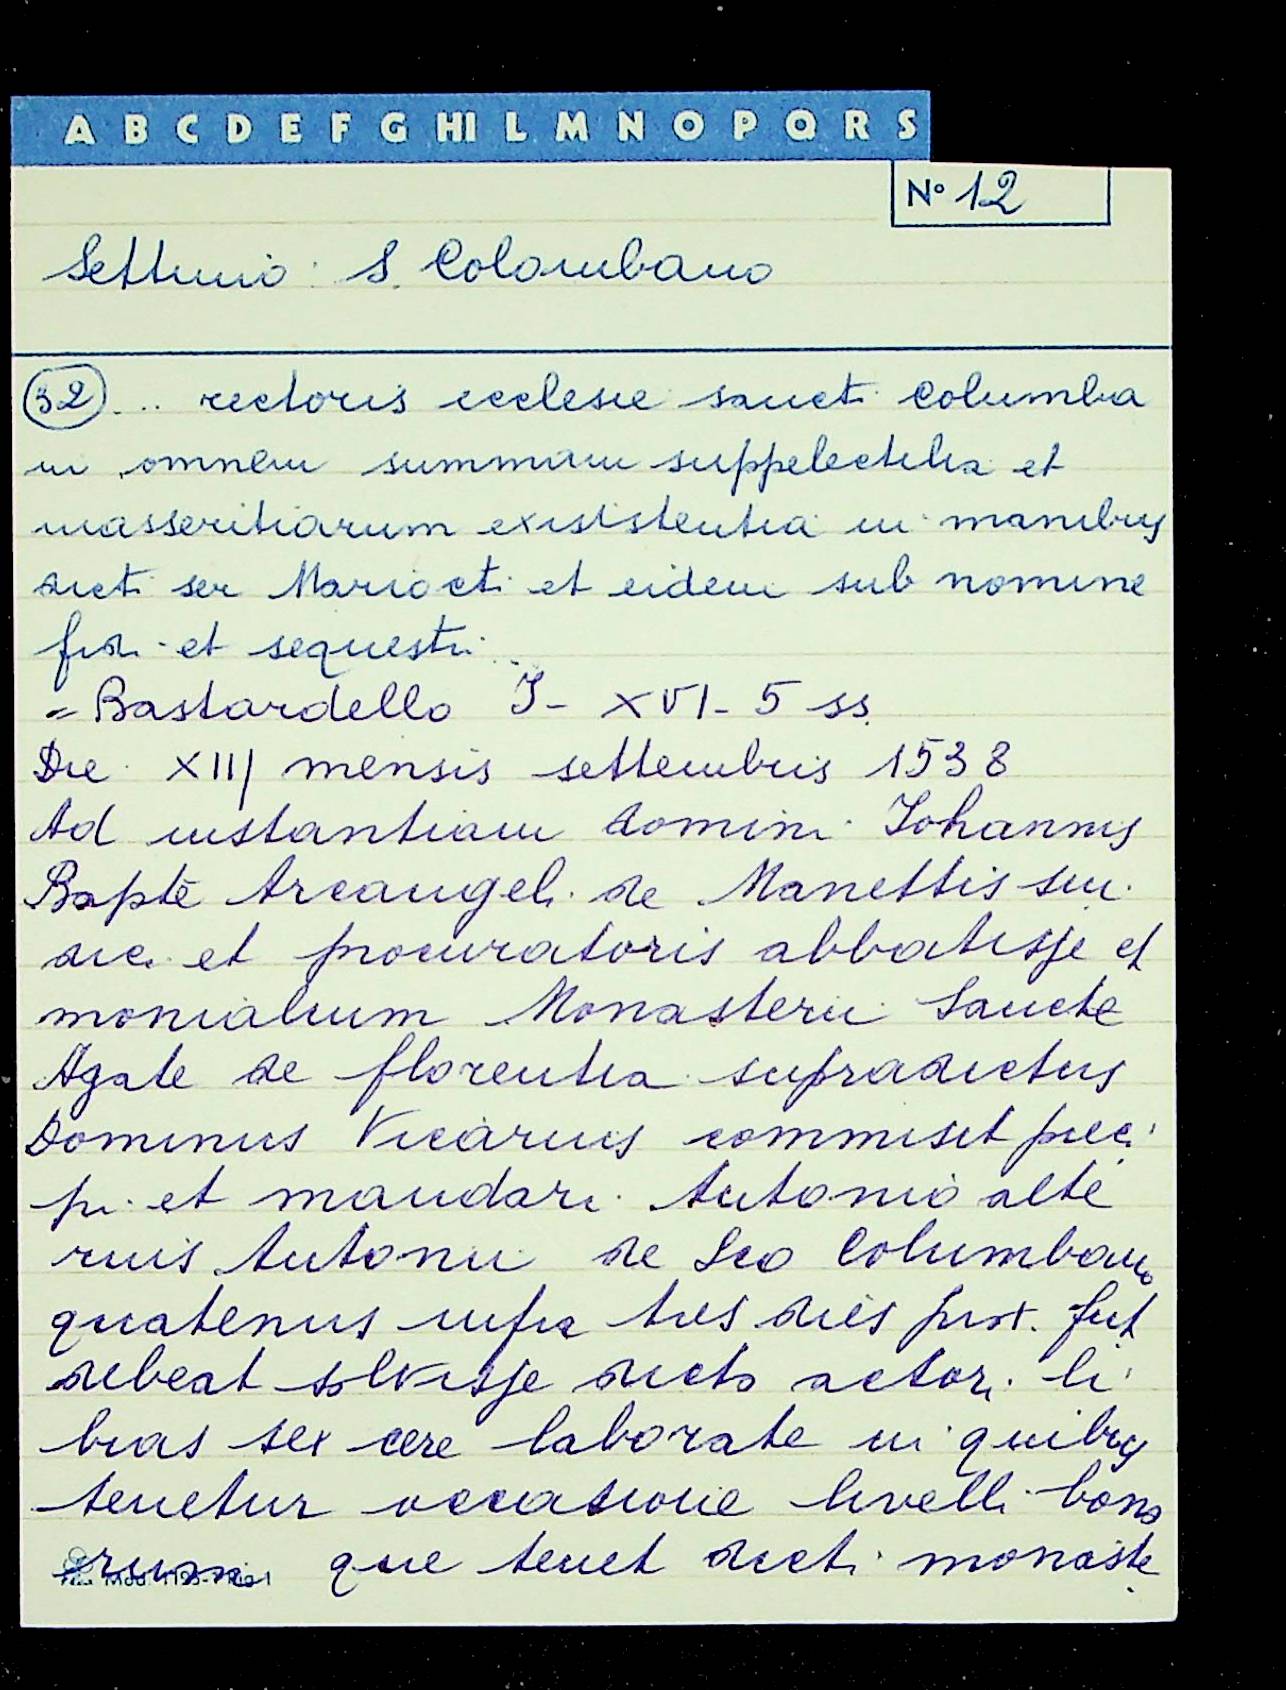 A B C D E F G HI L M N O P Q R S
N° 12
Settimo : S. Colombano
(32) ... rectoris ecclesie sancti Columba
ni omnem summam suppelectilia et
masseritiarum exsistentia in manibus
dicti ser Mariocti et eidem sub nomine
fidi et sequestri ..
= Bastardello I - XVI - 5 ss.
Die XIII mensis settembris 1538
Ad instantiam domini Iohannis
Bapte Arcangeli de Manettis sin
dici et procuratoris abbatisse et
monialium Monasterii Sancte
Agate de florentia supradictus
Dominus Vicarius commisit preci
pi et mandari Antonio alte
rius Antonii de Sco Columbano
quatenus infra tres dies prox. fut
debeat solvisse dicto actori li
bras sex cere laborate in quibus
tenetur occasione livelli bono
rum que tenet dicti monaste
Mod. 1